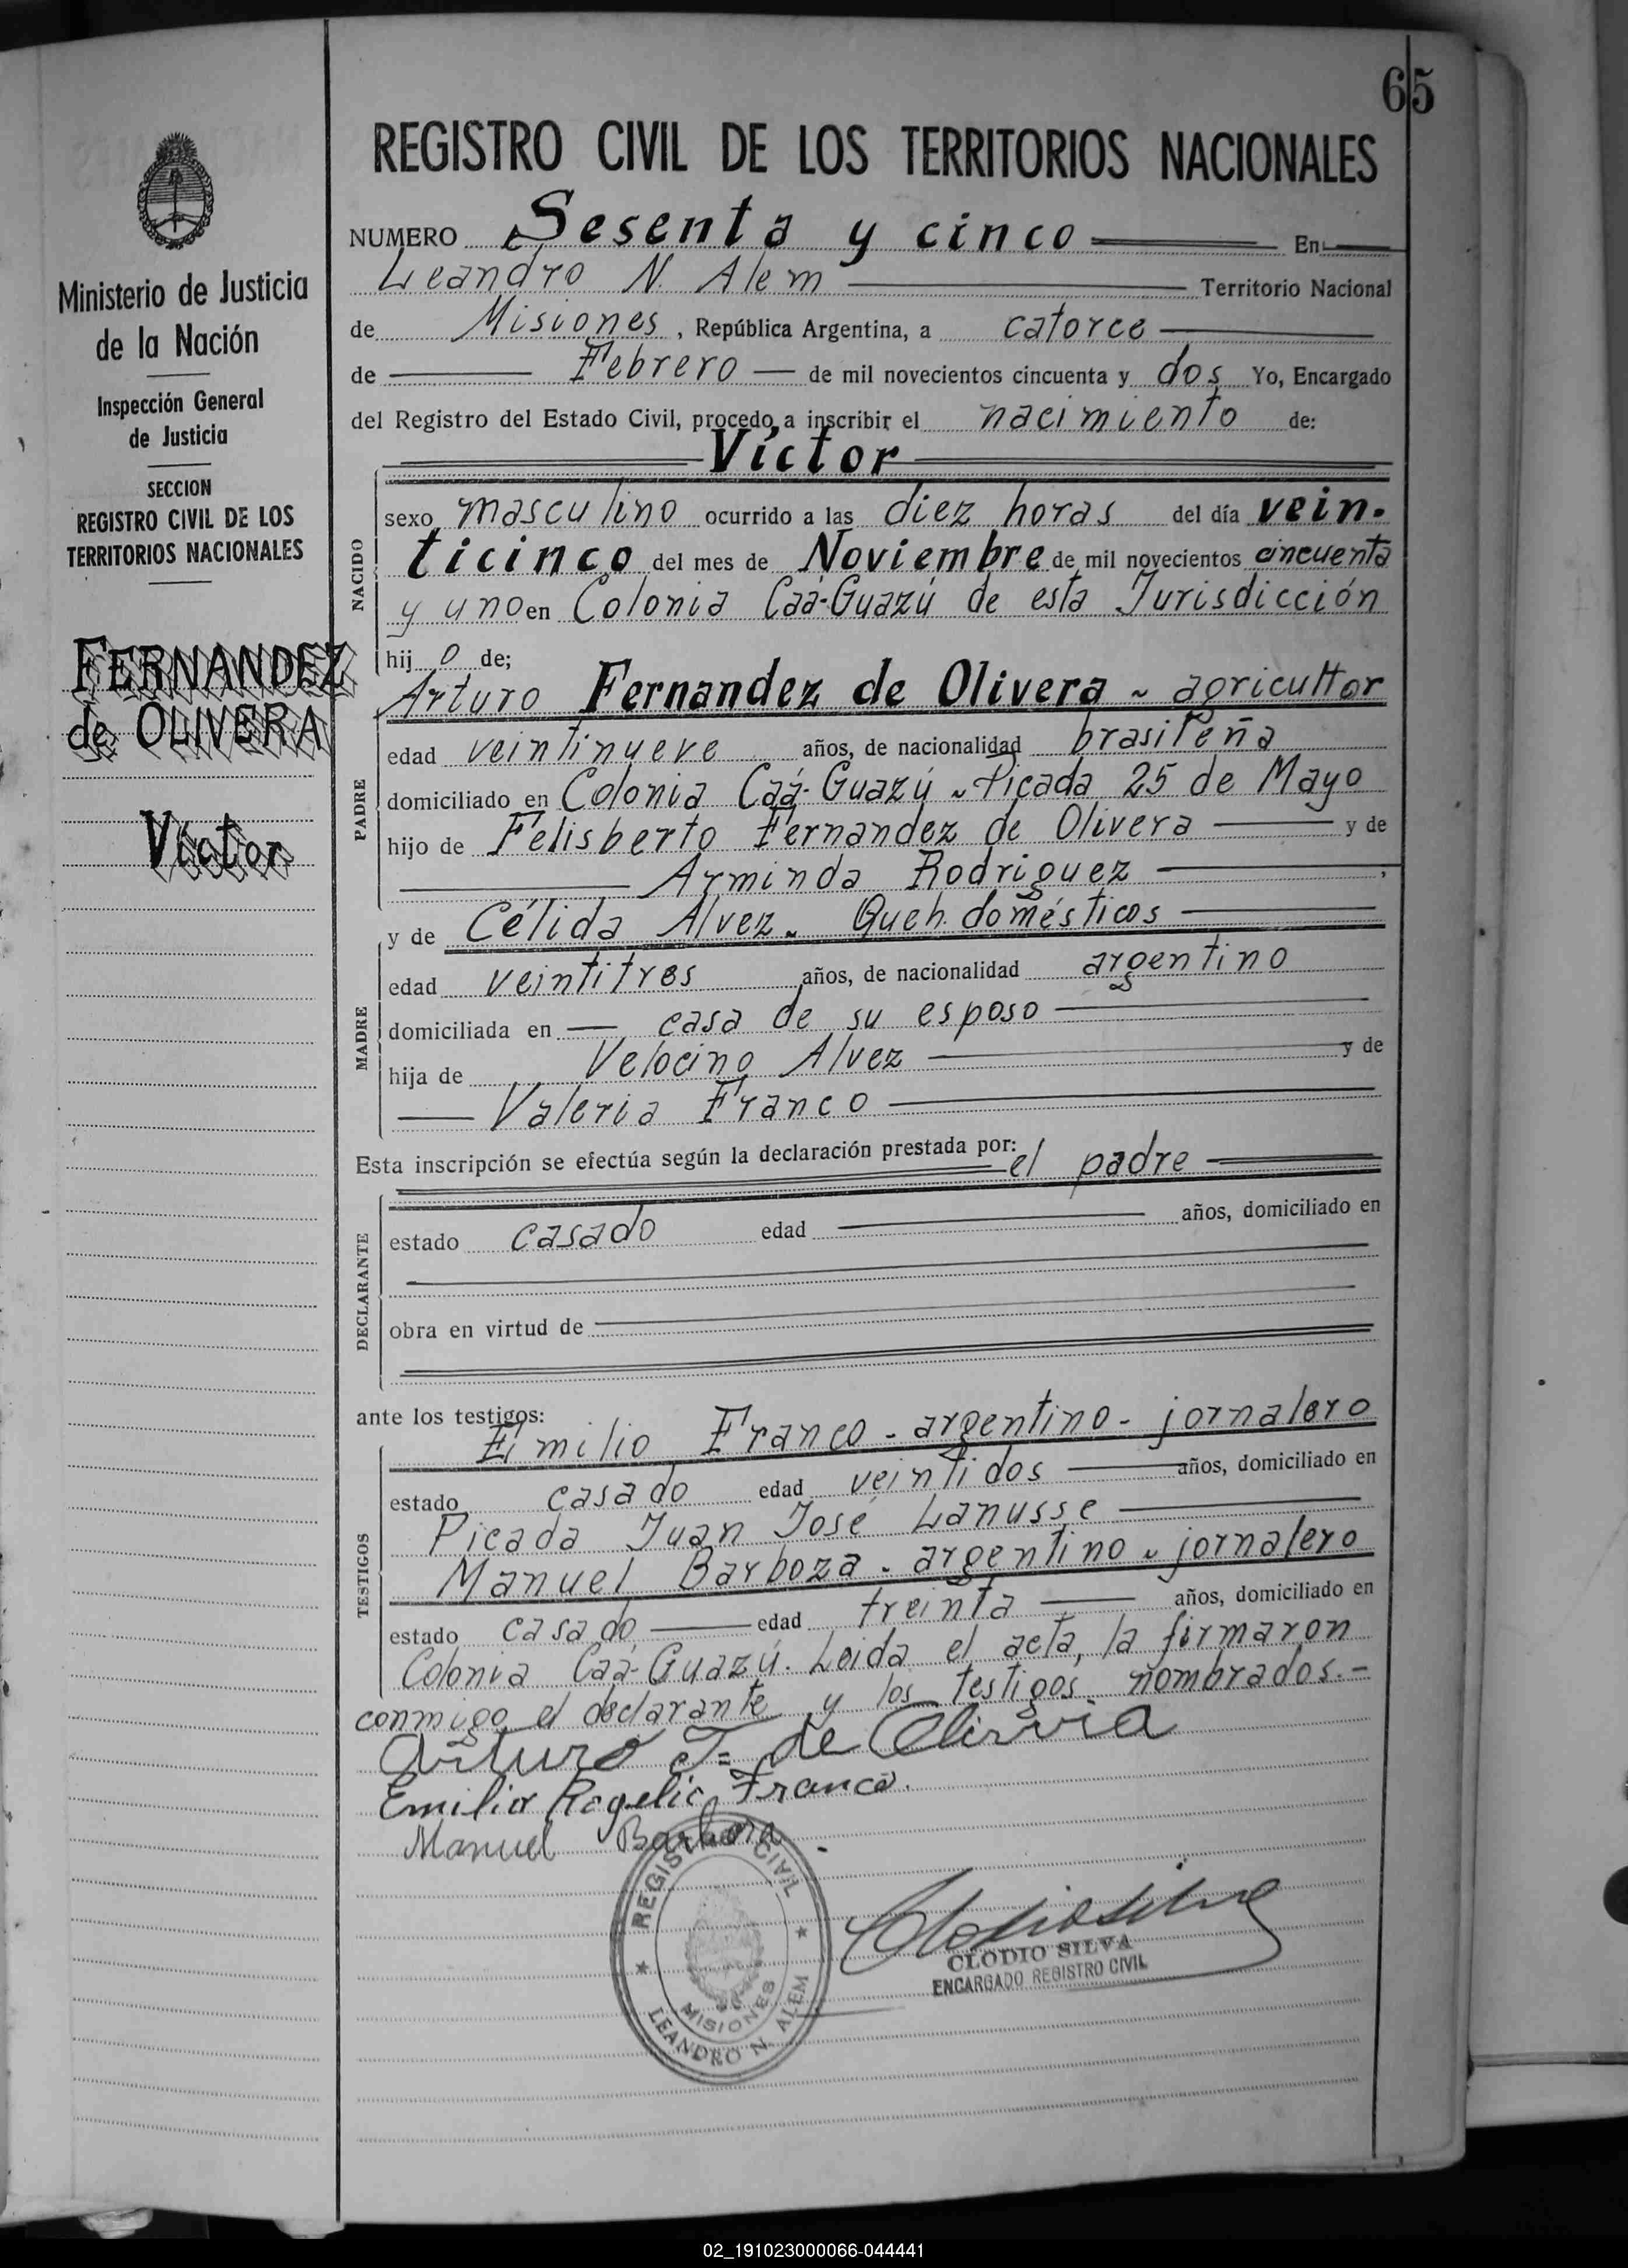 65
REGISTRO CIVIL DE LOS TERRITORIOS NACIONALES
Ministerio de Justicia
de la Nación
Inspección General
de Justicia
SECCION
REGISTRO CIVIL DE LOS
TERRITORIOS NACIONALES
FERNANDEZ
de OLIVERA
Víctor
NUMERO Sesenta y cinco En
Leandro N. Alem Territorio Nacional
de Misiones, República Argentina, a catorce
de Febrero de mil novecientos cincuenta y dos Yo, Encargado
del Registro del Estado Civil, procedo a inscribir el nacimiento de:
Víctor
NACIDO
sexo masculino ocurrido a las diez horas del día vein-
ticinco del mes de Noviembre de mil novecientos cincuenta
y uno en Colonia Caá-Guazú de esta Jurisdicción
hijo de;
PADRE
Arturo Fernandez de Olivera - agricultor
edad veintinueve años, de nacionalidad brasileña
domiciliado en Colonia Caá-Guazú - Picada 25 de Mayo
hijo de Felisberto Fernandez de Olivera y de
Arminda Rodriguez ,
MADRE
y de Célida Alvez. Queh. domésticos
edad veintitres años, de nacionalidad argentino
domiciliada en casa de su esposo
hija de Velocino Alvez y de
Valeria Franco
Esta inscripción se efectúa según la declaración prestada por: el padre
DECLARANTE
estado casado edad años, domiciliado en
obra en virtud de
ante los testigos:
TESTIGOS
Emilio Franco - argentino - jornalero
estado casado edad veintidos años, domiciliado en
Picada Juan José Lanusse
Manuel Barboza - argentino - jornalero
estado casado edad treinta años, domiciliado en
Colonia Caá-Guazú. Leida el acta, la firmaron
conmigo el declarante y los testigos nombrados.-
Arturo F= de Olivira
Emilio Rogelio Franco.
Manuel Barboza
REGISTRO CIVIL
MISIONES
LEANDRO N. ALEM
Clodio Silva
CLODIO SILVA
ENCARGADO REGISTRO CIVIL
02_191023000066-044441